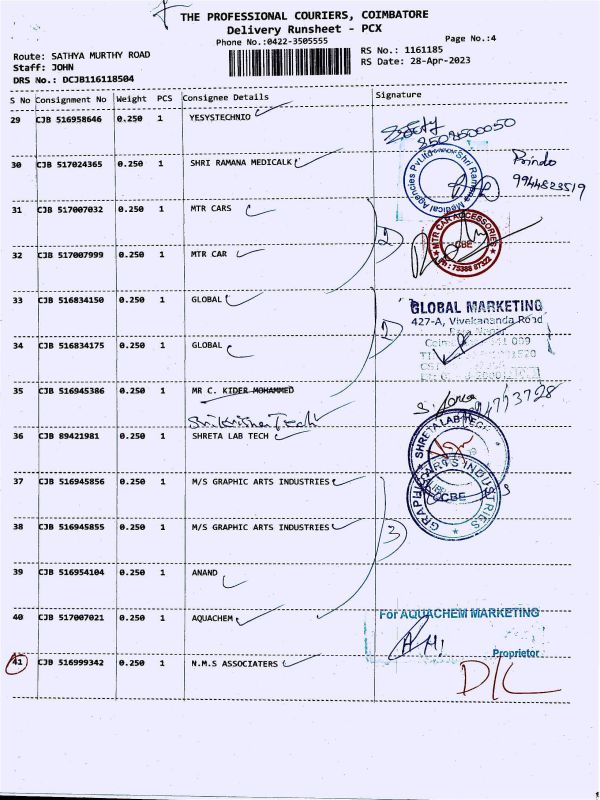 THE PROFESSIONAL COURIERS, COIMBATORE
Delivery Runsheet - PCX
Phone No.:0422-3505555
Page No.:4
Route: SATHYA MURTHY ROAD
Staff: JOHN
DRS No.: DCJB116118504
RS No.: 1161185
RS Date: 28-Apr-2023
S No Consignment No Weight PCS Consignee Details Signature
29 CJB 516958646 0.250 1 YESYSTECHNIO
30 CJB 517024365 0.250 1 SHRI RAMANA MEDICALK
Prindo
9944823519
Shri Ramana Medical Agencies Pvt Ltd
31 CJB 517007032 0.250 1 MTR CARS
2
MTR CAR ACCESSORIES
CBE
32 CJB 517007999 0.250 1 MTR CAR
33 CJB 516834150 0.250 1 GLOBAL
2
GLOBAL MARKETING
427-A, Vivekananda Road
34 CJB 516834175 0.250 1 GLOBAL
35 CJB 516945386 0.250 1 MR C. KIDER MOHAMMED
Sri Krishna Tech
36 CJB 89421981 0.250 1 SHRETA LAB TECH
SHRETA LAB TECH
37 CJB 516945856 0.250 1 M/S GRAPHIC ARTS INDUSTRIES
GRAPHIC ARTS INDUSTRIES
CBE
38 CJB 516945855 0.250 1 M/S GRAPHIC ARTS INDUSTRIES
3
39 CJB 516954104 0.250 1 ANAND
40 CJB 517007021 0.250 1 AQUACHEM
For AQUACHEM MARKETING
Proprietor
41 CJB 516999342 0.250 1 N.M.S ASSOCIATERS
D/L